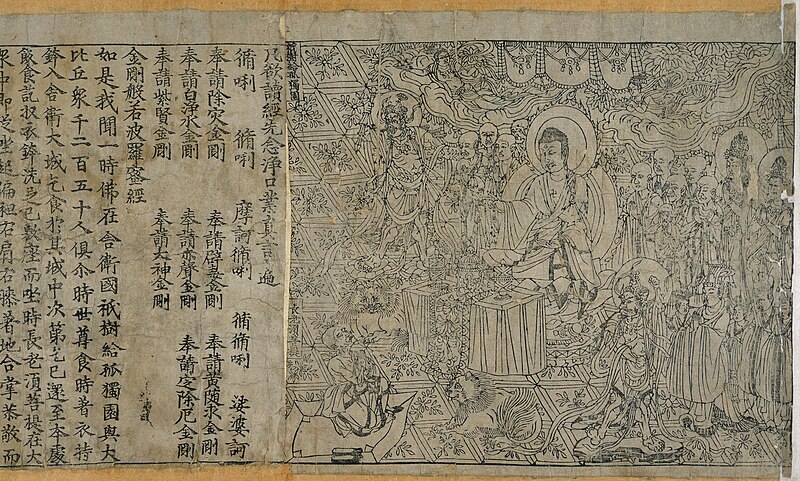 祇樹給孤獨園
長老須菩提
凡欲讀經先念淨口業真言一遍
脩唎 脩唎 摩訶脩唎 脩脩唎 娑婆訶
奉請除灾金剛 奉請辟毒金剛 奉請黃隨求金剛
奉請白金剛 奉請赤聲金剛 奉請定除厄金剛
奉請紫賢金剛 奉請大神金剛
金剛般若波羅蜜經
如是我聞一時佛在舍衛國祇樹給孤獨園與大
比丘眾千二百五十人俱尒時世尊食時著衣持
鉢入舍衛大城乞食於其城中次第乞已還至本處
飯食訖收衣鉢洗足已敷座而坐時長老須菩提在大
眾中即從坐起偏袒右肩右膝著地合掌恭敬而